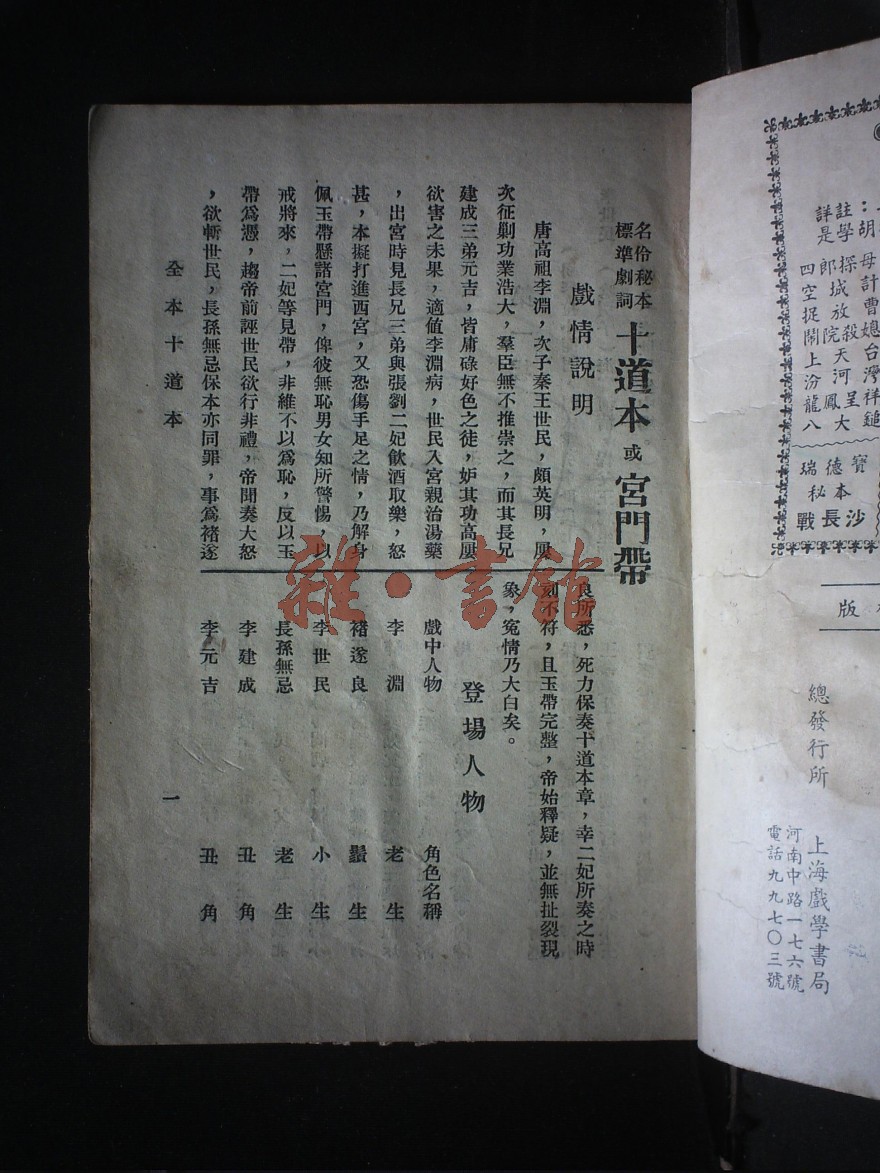 瑞德寶
秘本
戰長沙
版
總發行所
上海戲學書局
河南中路一七六號
電話九九七〇三號
名伶秘本
標準劇詞
十道本 或 宮門帶
戲情說明
唐高祖李淵，次子秦王世民，頗英明，屢
次征剿功業浩大，羣臣無不推崇之，而其長兄
建成三弟元吉，皆庸碌好色之徒，妒其功高屢
欲害之未果，適値李淵病，世民入宮親治湯藥
，出宮時見長兄三弟與張劉二妃飲酒取樂，怒
甚，本擬打進西宮，又恐傷手足之情，乃解身
佩玉帶懸諸宮門，俾彼無恥男女知所警惕，以
戒將來，二妃等見帶，非維不以爲恥，反以玉
帶爲憑，趨帝前誣世民欲行非禮，帝聞奏大怒
，欲斬世民，長孫無忌保本亦同罪，事爲褚遂
良所悉，死力保奏十道本章，幸二妃所奏之時
刻不符，且玉帶完整，帝始釋疑，並無扯裂現
象，冤情乃大白矣。
登場人物
戲中人物 角色名稱
李淵 老生
褚遂良 鬚生
李世民 小生
長孫無忌 老生
李建成 丑角
李元吉 丑角
全本十道本 一
雜·書館